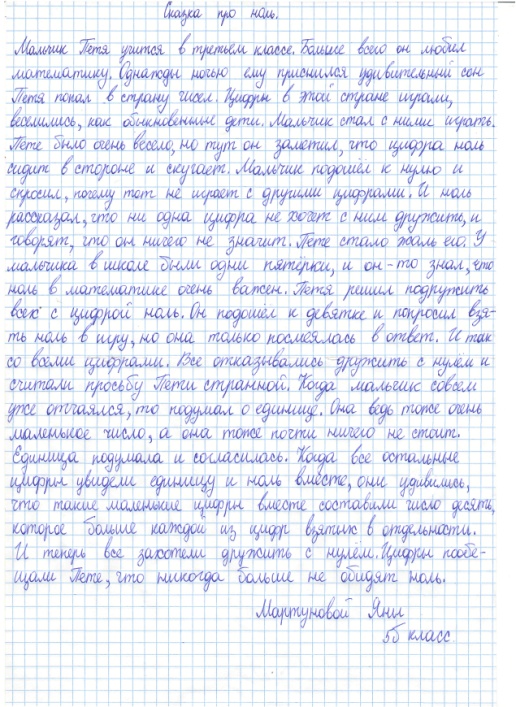 Сказка про ноль.
Мальчик Петя учится в третьем классе. Больше всего он любил
математику. Однажды ночью ему приснился удивительный сон
Петя попал в страну чисел. Цифры в этой стране играли,
веселились, как обыкновенные дети. Мальчик стал с ними играть.
Пете было очень весело, но тут он заметил, что цифра ноль
сидит в стороне и скучает. Мальчик подошёл к нулю и
спросил, почему тот не играет с другими цифрами. И ноль
рассказал, что ни одна цифра не хочет с ним дружить, и
говорят, что он ничего не значит. Пете стало жаль его. У
мальчика в школе были одни пятёрки, и он-то знал, что
ноль в математике очень важен. Петя решил подружить
всех с цифрой ноль. Он подошёл к девятке и попросил взя-
ть ноль в игру, но она только посмеялась в ответ. И так
со всеми цифрами. Все отказывались дружить с нулём и
считали просьбу Пети странной. Когда мальчик совсем
уже отчаялся, то подумал о единице. Она ведь тоже очень
маленькое число, а она тоже почти ничего не стоит.
Единица подумала и согласилась. Когда все остальные
цифры увидели единицу и ноль вместе, они удивились,
что такие маленькие цифры вместе составили число десять,
которое больше каждой из цифр взятых в отдельности.
И теперь все захотели дружить с нулём. Цифры пообе-
щали Пете, что никогда больше не обидят ноль.
Мартуновой Яны
5б класс